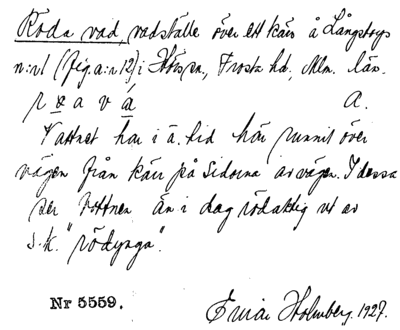 Röda vad, vadställe över ett kärr å Långstorps
n:r1 (fig. a:r 12) i Hörsen., Frosta hd., Mlm. län.
r a v á A.
Vattnet har i ä. tid här runnit över
vägen från kärr på sidorna av vägen. I dessa
ser vattnen än i dag rödaktig ut av
s.k. "rödynga".
Nr 5559.
Holmberg. 1927.